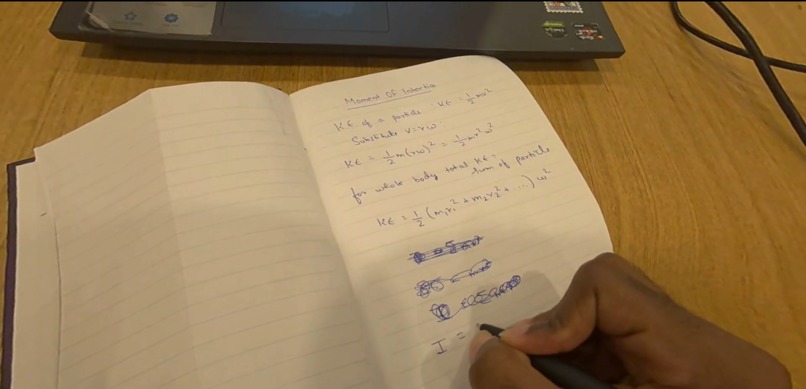 Moment Of Inertia
KE of a particle : KE = 1/2 mv²
Substitute v = rω
KE = 1/2 m(rω)² = 1/2 mr²ω²
for whole body total KE = sum of particle
KE = 1/2 (m₁r₁² + m₂r₂² + ...) ω²
I =